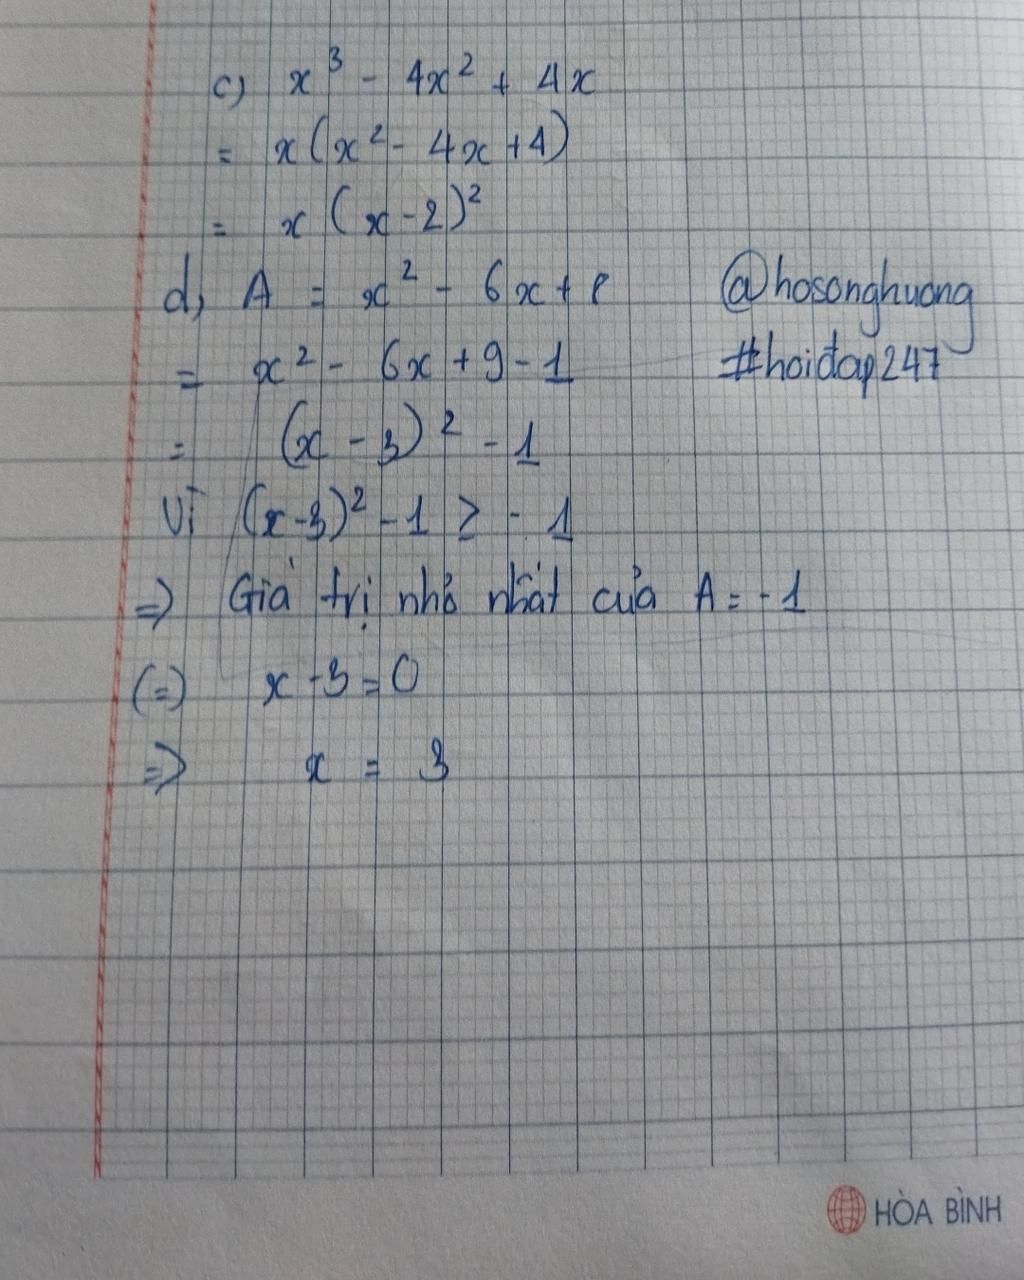 c) x³ - 4x² + 4x
= x(x² - 4x + 4)
= x(x-2)²
d, A = x² - 6x + 8
= x² - 6x + 9 - 1
= (x - 3)² - 1
Vì (x-3)² - 1 ≥ -1
=> Giá trị nhỏ nhất của A = -1
(=) x - 3 = 0
=> x = 3
@hosonghuong
#hoidap247
HÒA BÌNH